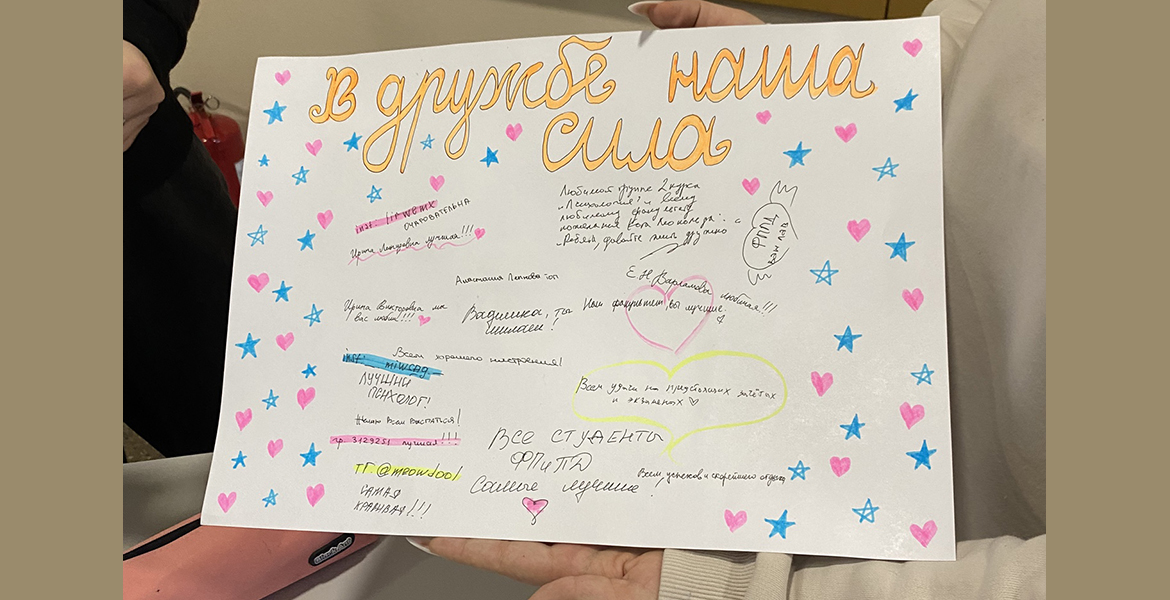 В дружбе наша
сила
Любимой группе 2 курса
„Психология“ и всему
любимому факультету
пожелания Кота Леопольда:
„Ребята, давайте жить дружно“
inst:
ОЧАРОВАТЕЛЬНА
Ирина лучшая!!!
ФПИПД
Анастасия топ
Е.Н. Варламова любимая!!!
Ирина Викторовна мы
вас любим!!!
Вадимка, ты
Наш факультет, вы лучшие.
Всем хорошего настроения!
inst: miwsag
ЛУЧШИЙ
ПСИХОЛОГ!
Всем удачи на предстоящих зачётах
и экзаменах
Желаю всем выспаться!
гр. 3129251 лучшая!!!
ВСЕ СТУДЕНТЫ
ФПиПД
Самые лучшие!
тг: @meowdool
САМАЯ
КРАСИВАЯ!!!
Всем успехов и скорейшего отдыха